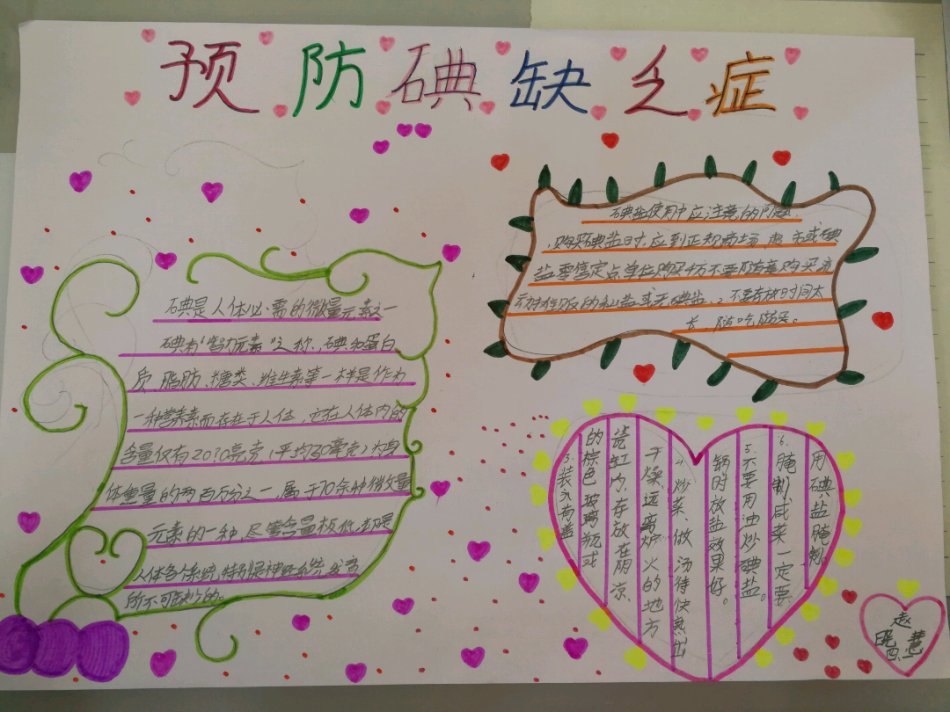 预防碘缺乏症
碘是人体必需的微量元素之一
碘有“智力元素”之称,碘和蛋白
质、脂肪、糖类、维生素等一样是作为
一种营养素而存在于人体,它在人体内的
含量仅有20~50毫克(平均30毫克)为身
体重量的两百万分之一,属于70余种微量
元素的一种,尽管含量极低,却是
人体各个系统,特别是神经系统
所不可缺少的。
碘盐使用中应注意的问题
购买碘盐时,应到正规商场,超市或碘
盐零售定点单位购买
的私盐或无碘盐。2、不要存放时间太
长,随吃随买。
3、装入有盖
的棕色玻璃瓶或
瓷缸内,存放在阴凉、
干燥、远离炉火的地方
4、炒菜、做汤待快熟出
锅时放盐效果好。
5、不要用油炒碘盐。
6、腌制咸菜一定要
用碘盐腌制
赵
慧